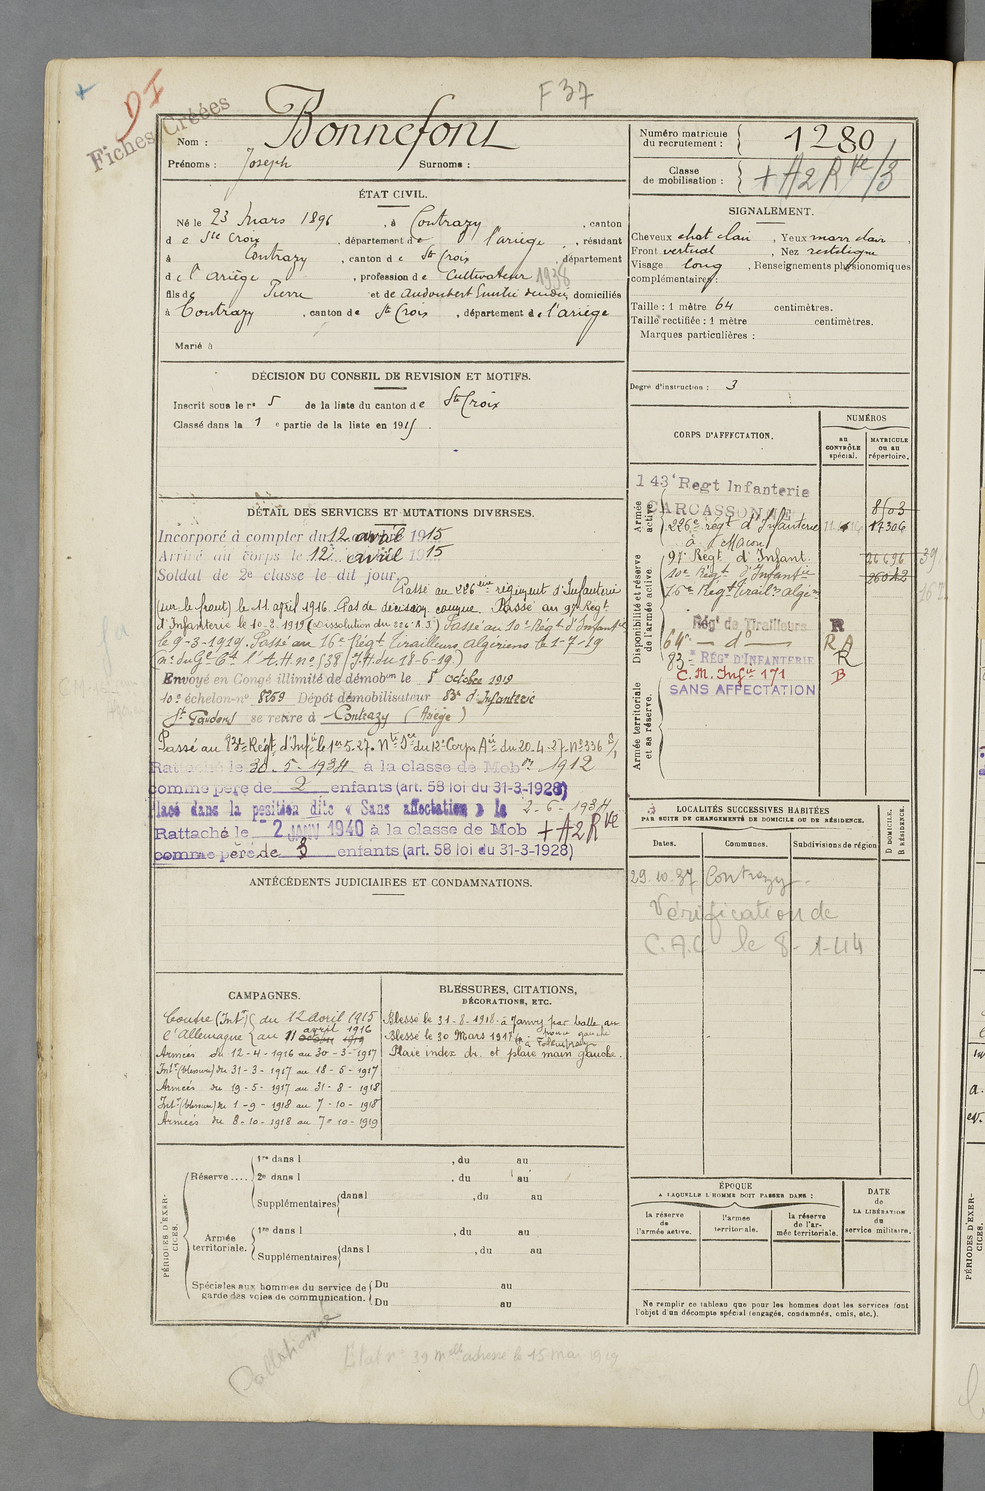 F 37
DI
Fiches Créées
Nom : Bonnefont
Prénoms : Joseph Surnoms :
Numéro matricule du recrutement : 1280
Classe de mobilisation : + A2 RVe/3
ÉTAT CIVIL.
Né le 23 Mars 1896, à Contrazy, canton
de Ste Croix, département de l'ariège, résidant
à Contrazy, canton de St Croix, département
de l'Ariège, profession de Cultivateur 1938
fils de Pierre et de Audoubert domiciliés
à Contrazy, canton de St Croix, département de l'ariège
Marié à
SIGNALEMENT.
Cheveux chat clair, Yeux marr clair,
Front vertical, Nez rectiligne
Visage long, Renseignements physionomiques
complémentaires :
Taille : 1 mètre 64 centimètres.
Taille rectifiée : 1 mètre centimètres.
Marques particulières :
Degré d'instruction : 3
DÉCISION DU CONSEIL DE REVISION ET MOTIFS.
Inscrit sous le no 5 de la liste du canton de St Croix
Classé dans la 1e partie de la liste en 1915.
CORPS D'AFFECTATION.
NUMÉROS
au CONTRÔLE spécial.
MATRICULE ou au répertoire.
Armée active.
143e Regt Infanterie
CARCASSONNE 8503
226e régt d'Infanterie 17306
à (Macon)
Disponibilité et réserve de l'armée active.
97e Régt d'Infant. 26696 39
10e Régt d'Infantie
16e Regt Tiraills algé
Rég' de Tirailleurs R
64e — do — RA
83e RÉGt D'INFANTERIE R
C. M. Infie 171 B
SANS AFFECTATION
Armée territoriale et sa réserve.
DÉTAIL DES SERVICES ET MUTATIONS DIVERSES.
Incorporé à compter du 12 avril 1915
Arrivé au corps le 12 avril 1915
Soldat de 2e classe le dit jour.
Passé au 226ème régiment d'Infanterie
(sur le front) le 11 avril 1916. Pas de décision connue. Passé au 97e Régt
d'Infanterie le 10-2-1919 (Dissolution du 226e R.I.) Passé au 10e Régt d'Infantie
le 9-3-1919. Passé au 16e Régt Tirailleurs algériens le 1-7-19
(J.M. du 18-6-19)
Envoyé en Congé illimité de démobon le 8 octobre 1919
10e échelon no 8259 Dépôt démobilisateur 83e d'Infanterie
St Gaudens se retire à Contrazy (Ariège)
Passé au 83e Régt d'Infie le 1er 5.27. du 20.4.27. No 336
Rattaché le 30-5-1934 à la classe de Mobon 1912
comme père de 2 enfants (art. 58 loi du 31-3-1928)
Placé dans la position dite « Sans affectation » le 2-6-1934
Rattaché le 2 JANV 1940 à la classe de Mob + A2 RVe
comme père de 3 enfants (art. 58 loi du 31-3-1928)
LOCALITÉS SUCCESSIVES HABITÉES
PAR SUITE DE CHANGEMENTS DE DOMICILE OU DE RÉSIDENCE.
D DOMICILE.
R RÉSIDENCE.
Dates. Communes. Subdivisions de région
29.10.37 Contrazy.
Vérification de
C.A.C le 8-1-44
ANTÉCÉDENTS JUDICIAIRES ET CONDAMNATIONS.
CAMPAGNES.
Contre (Intr) du 12 avril 1915
l'Allemagne au 11 avril 1916
Armées du 12-4-1916 au 30-3-1917
Intr (blessure) du 31-3-1917 au 18-5-1917
Armées du 19-5-1917 au 31-8-1918
Intr (blessure) du 1-9-1918 au 7-10-1918
Armées du 8-10-1918 au 7-10-1919
BLESSURES, CITATIONS,
DÉCORATIONS, ETC.
Blessé le 31-8-1918 à Janvry par balle au
main gauche
Blessé le 30 Mars 1917 à
Plaie index dr. et plaie main gauche.
PÉRIODES D'EXERCICES.
Réserve ....
1re dans l , du au
2e dans l , du au
Supplémentaires dans l , du au
Armée territoriale.
1re dans l , du au
Supplémentaires dans l , du au
Spéciales aux hommes du service de garde des voies de communication.
Du au
Du au
ÉPOQUE
A LAQUELLE L'HOMME DOIT PASSER DANS :
la réserve de l'armée active.
l'armée territoriale.
la réserve de l'armée territoriale.
DATE de LA LIBÉRATION du service militaire.
Ne remplir ce tableau que pour les hommes dont les services font
l'objet d'un décompte spécial (engagés, condamnés, omis, etc.).
Etat no 39 adresse le 15 mai 1919
PÉRIODES D'EXERCICES.